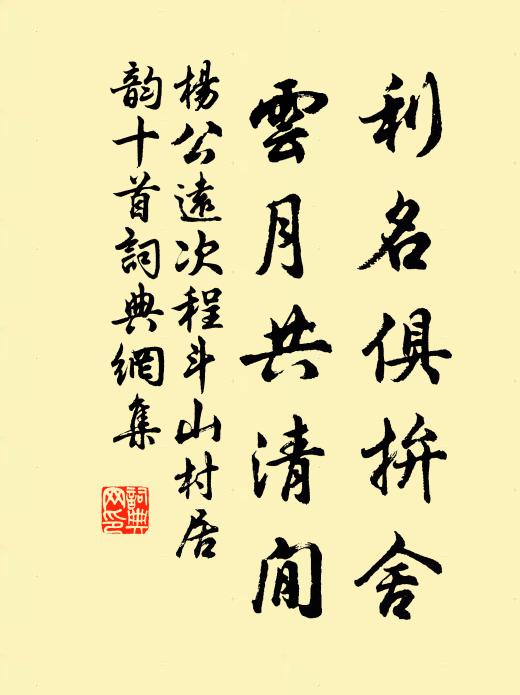 利名俱拚舍
雲月共清閒
楊公遠次程斗山村居
韵十首詞典網集
詞典
网印